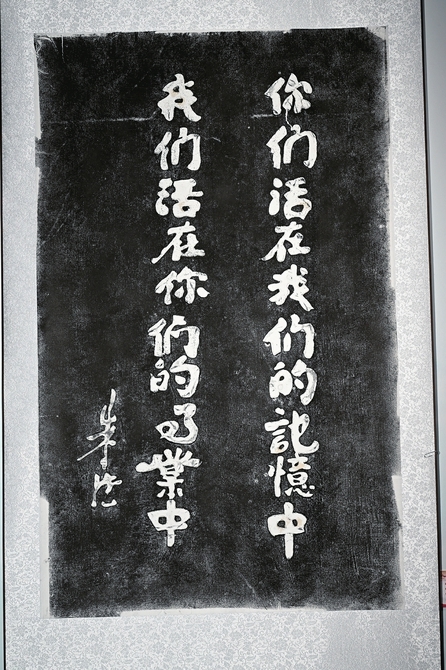 你们活在我们的記憶中
我们活在你们的事業中